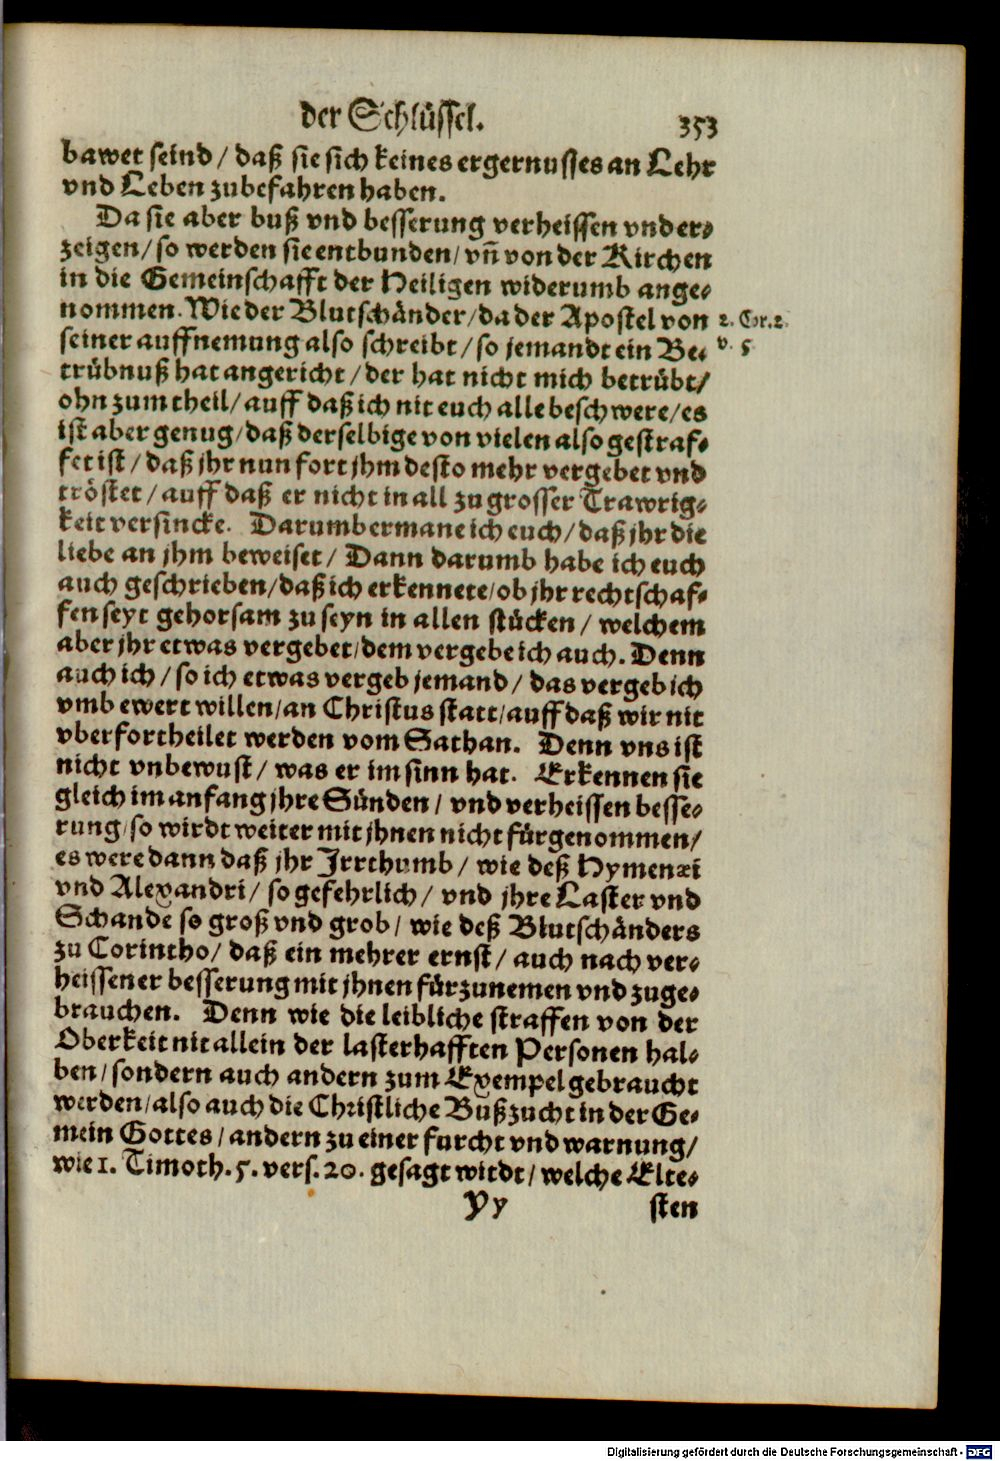 der Schlüssel. 353
bawet seind / daß sie sich keines ergernusses an Lehr
vnd Leben zubefahren haben.
Da sie aber buß vnd besserung verheissen vnd er⸗
zeigen / so werden sie entbunden / vñ von der Kirchen
in die Gemeinschafft der Heiligen widerumb ange⸗
nommen. Wie der Blutschänder / da der Apostel von 2. Cor. 2.
seiner auffnemung also schreibt / so jemandt ein Be⸗ v. 5
trübnuß hat angericht / der hat nicht mich betrübt /
ohn zum theil / auff daß ich nit euch alle beschwere / es
ist aber genug / daß derselbige von vielen also gestraf⸗
fet ist / daß jhr nun fort jhm desto mehr vergebet vnd
tröstet / auff daß er nicht in all zu grosser Trawrig⸗
keit versincke. Darumb ermane ich euch / daß jhr die
liebe an jhm beweiset / Dann darumb habe ich euch
auch geschrieben / daß ich erkennete / ob jhr rechtschaf⸗
fen seyt gehorsam zu seyn in allen stücken / welchem
aber jhr etwas vergebet / dem vergebe ich auch. Denn
auch ich / so ich etwas vergeb jemand / das vergeb ich
vmb ewert willen / an Christus statt / auff daß wir nit
vberfortheilet werden vom Sathan. Denn vns ist
nicht vnbewust / was er im sinn hat. Erkennen sie
gleich im anfang jhre Sünden / vnd verheissen besse⸗
rung / so wirdt weiter mit jhnen nicht fürgenommen /
es were dann daß jhr Jrrthumb / wie deß Hymenæi
vnd Alexandri / so gefehrlich / vnd jhre Laster vnd
Schande so groß vnd grob / wie deß Blutschänders
zu Corintho / daß ein mehrer ernst / auch nach ver⸗
heissener besserung mit jhnen fürzunemen vnd zuge⸗
brauchen. Denn wie die leibliche straffen von der
Oberkeit nit allein der lasterhafften Personen hal⸗
ben / sondern auch andern zum Exempel gebraucht
werden / also auch die Christliche Bußzucht in der Ge⸗
mein Gottes / andern zu einer furcht vnd warnung /
wie 1. Timoth. 5. vers. 20. gesagt wirdt / welche Elte⸗
Yy sten
Digitalisierung gefördert durch die Deutsche Forschungsgemeinschaft - DFG